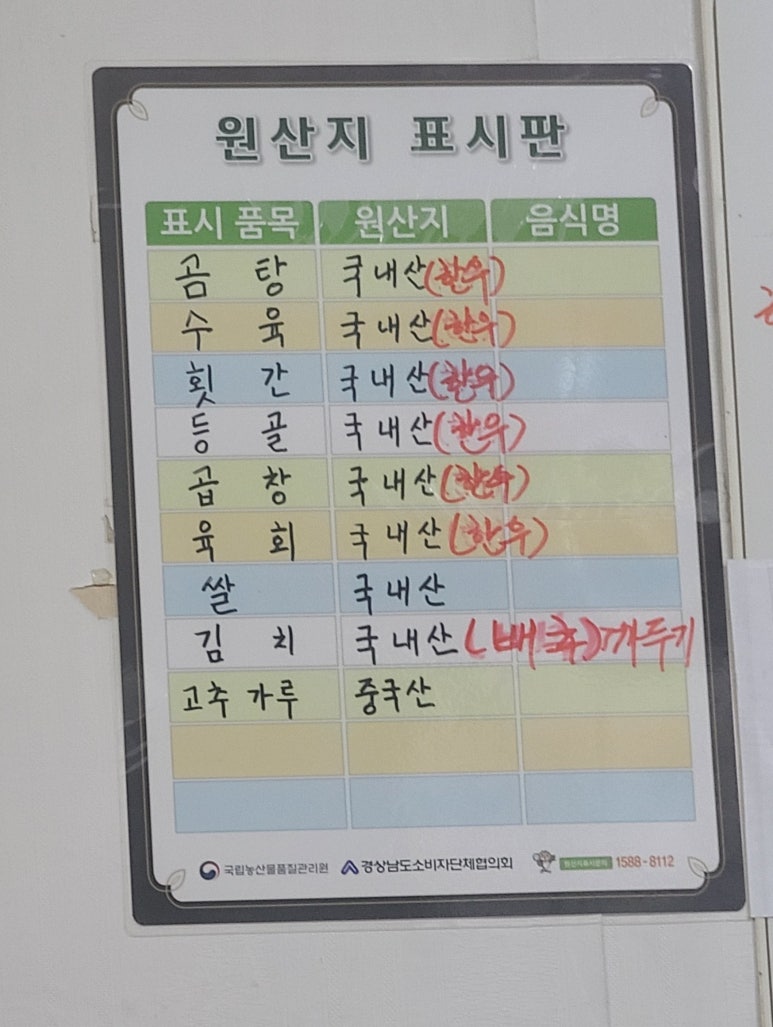 원산지 표시판
표시 품목 원산지 음식명
곰 탕 국내산(한우)
수 육 국내산(한우)
횟 간 국내산(한우)
등 골 국내산(한우)
곱 창 국내산(한우)
육 회 국내산(한우)
쌀 국내산
김 치 국내산(배추)깍두기
고추 가루 중국산
국립농산물품질관리원 경상남도소비자단체협의회 원산지표시문의 1588-8112